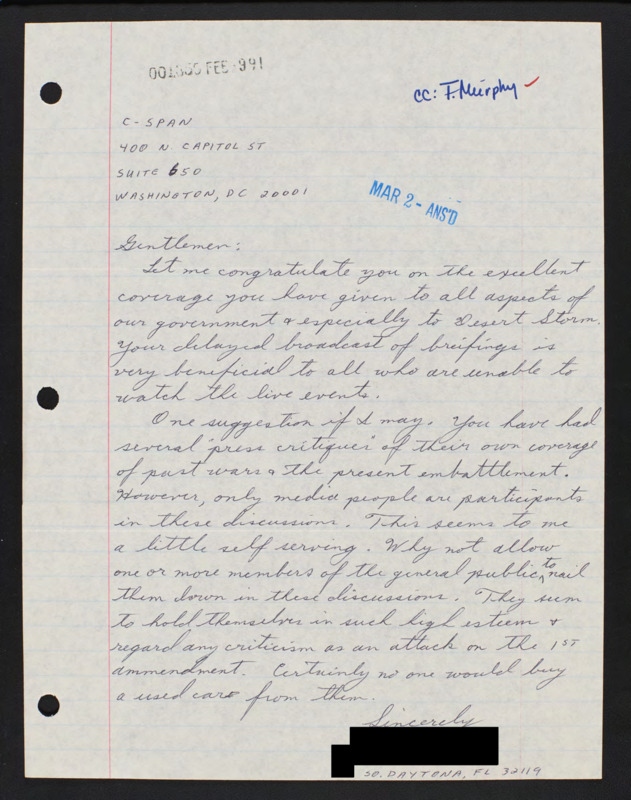 FEB 1991
cc: F. Murphy
C-SPAN
400 N. CAPITOL ST
SUITE 650
WASHINGTON, DC 20001
MAR 2 - ANS'D
Gentlemen:
Let me congratulate you on the excellent
coverage you have given to all aspects of
our government & especially to Desert Storm.
Your delayed broadcast of breifings is
very beneficial to all who are unable to
watch the live events.
One suggestion if I may. You have had
several "press critiques" of their own coverage
of past wars & the present embattlement.
However, only media people are participants
in these discussions. This seems to me
a little self serving. Why not allow
one or more members of the general public to nail
them down in these discussions. They seem
to hold themselves in such high esteem &
regard any criticism as an attack on the 1ST
ammendment. Certainly no one would buy
a used car from them.
Sincerely
SO. DAYTONA, FL 32119